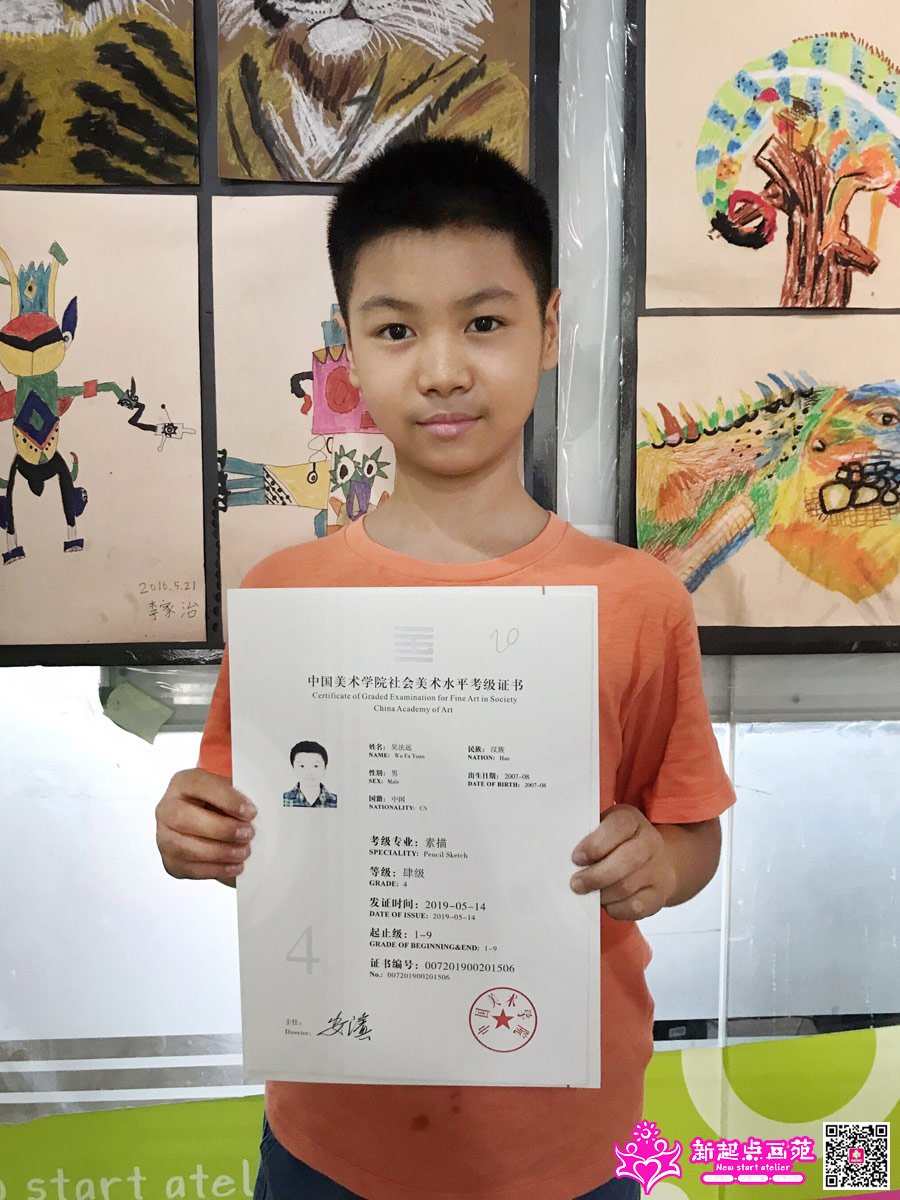 2016.5.21
李家治
20
中国美术学院社会美术水平考级证书
Certificate of Graded Examination for Fine Art in Society
China Academy of Art
姓名： 吴法远 民族： 汉族
NAME: Wu Fa Yuan NATION: Han
性别： 男 出生日期： 2007-08
SEX: Male DATE OF BIRTH: 2007-08
国籍： 中国
NATIONALITY: CN
考级专业：素描
SPECIALITY: Pencil Sketch
等级：肆级
GRADE: 4
发证时间：2019-05-14
DATE OF ISSUE: 2019-05-14
起止级：1-9
GRADE OF BEGINNING&END: 1-9
证书编号：007201900201506
No.: 007201900201506
4
主任：
Director:
中国美术学院
start atel
新起点画苑
New start atelier